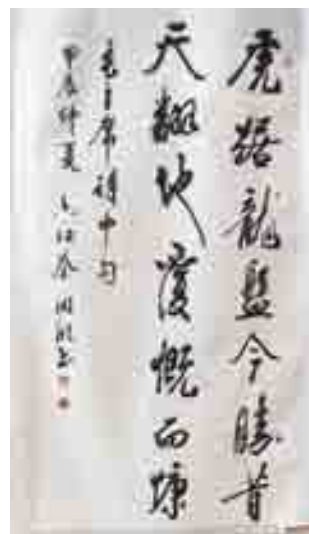 虎踞龍盤今勝昔
天翻地覆慨而慷
毛主席詩中句
甲辰仲夏